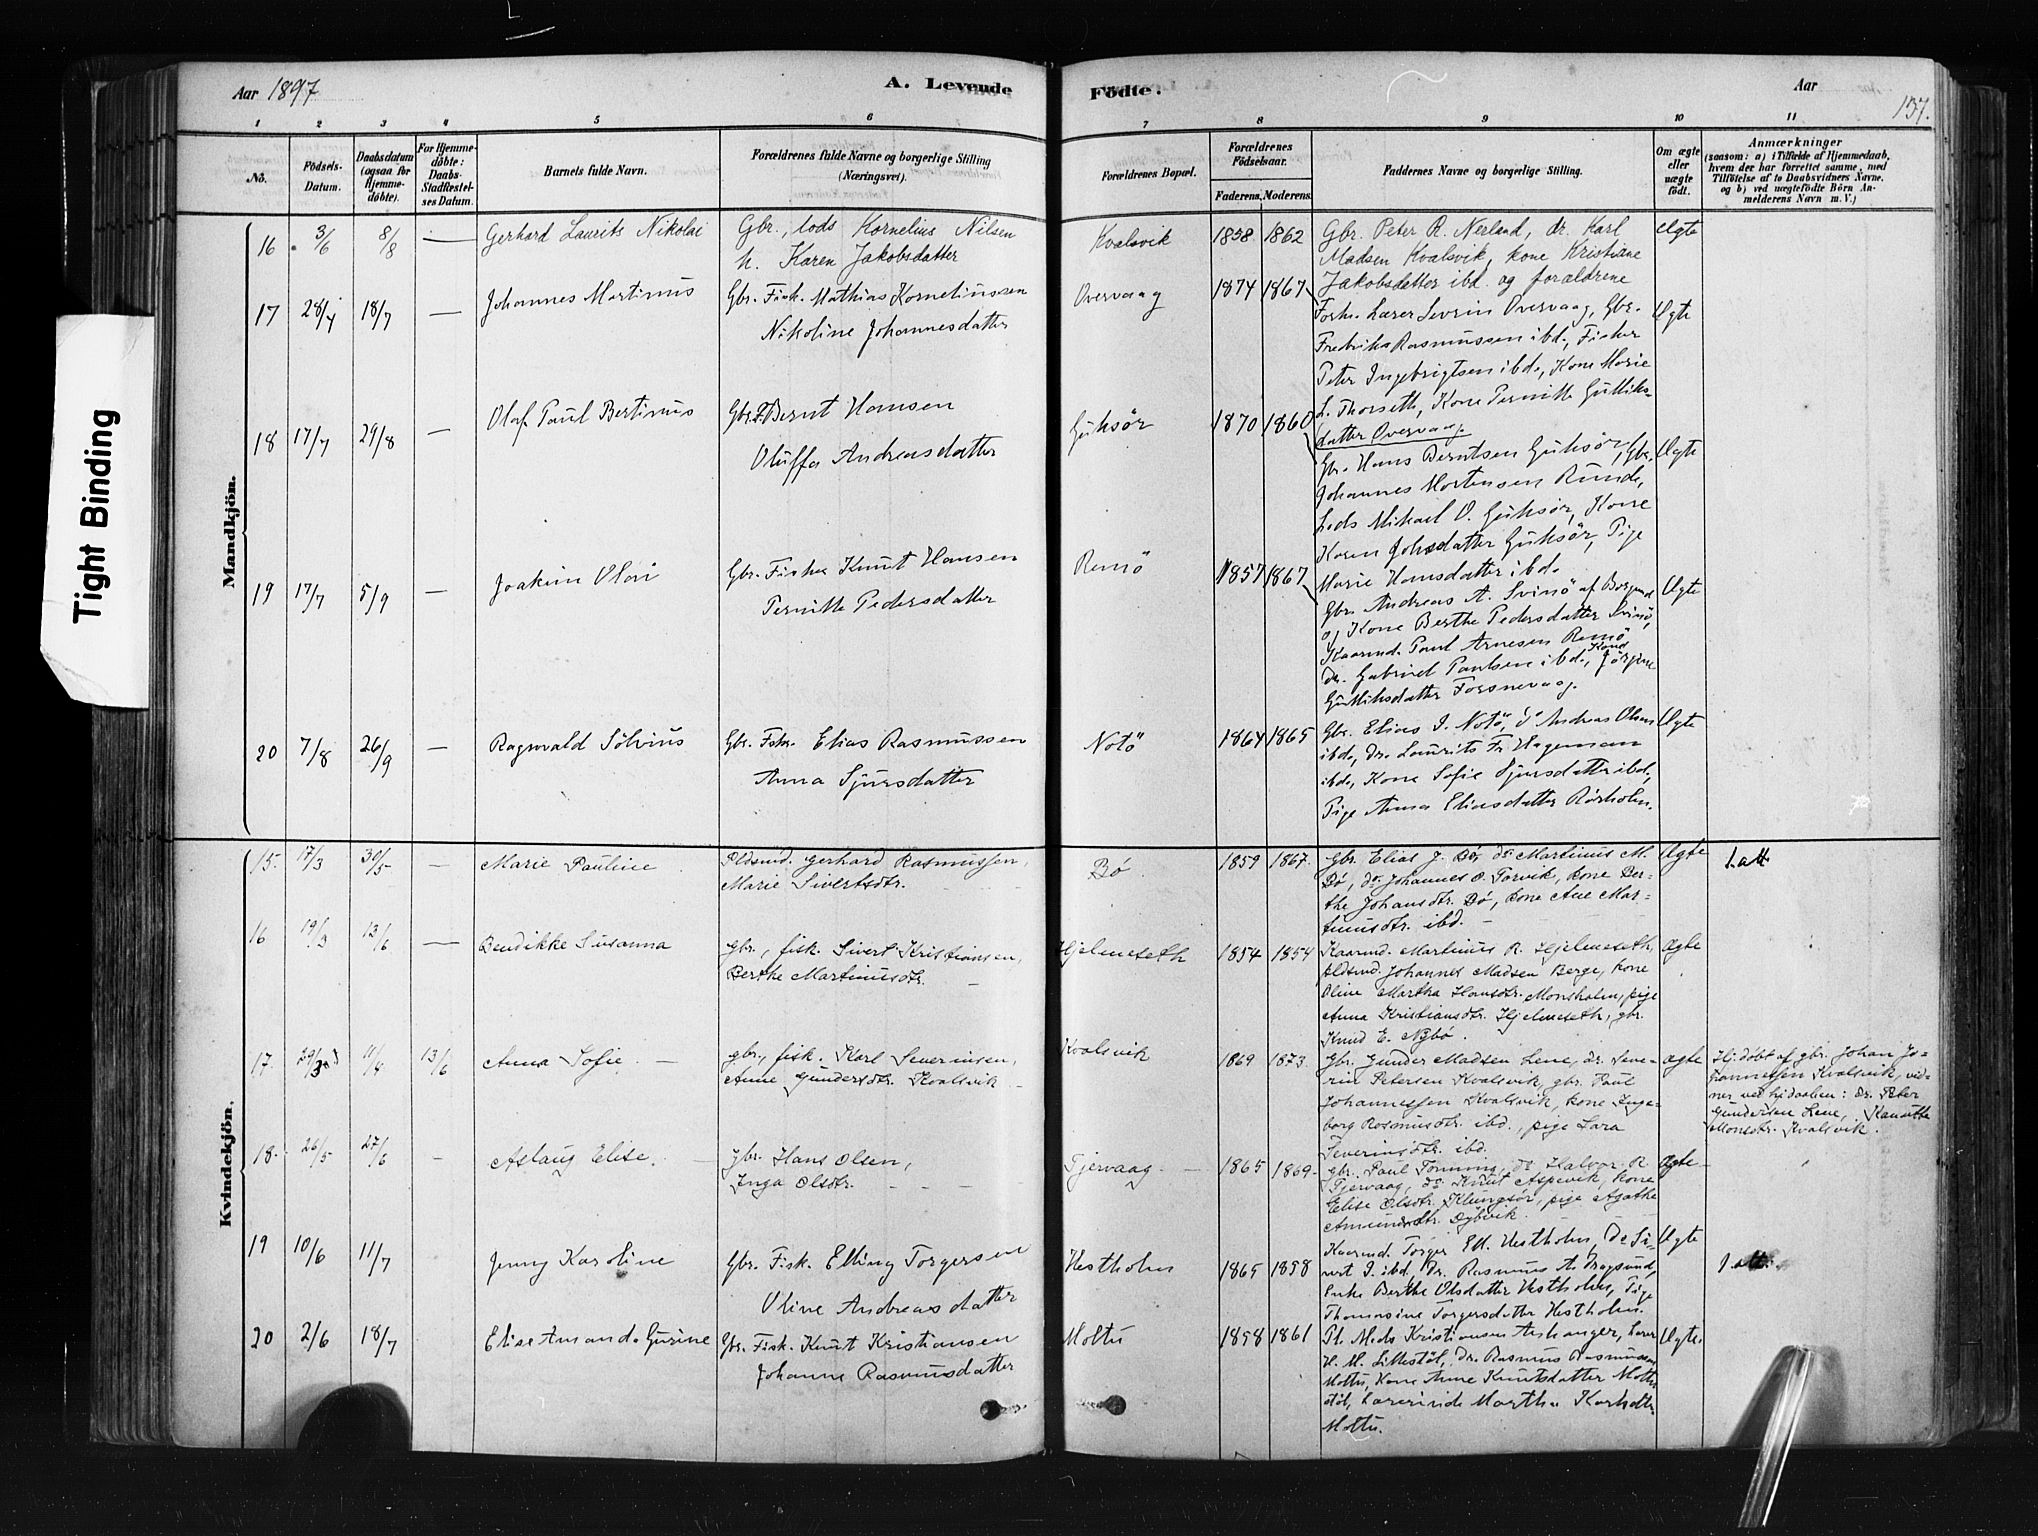 Aar 1897
A. Levende
Födte.
Aar
137.
1 2 3 4 5 6 7 8 9 10 11
No.
Födsels-
Datum.
Daabsdatum
(ogsaa for
Hjemme-
døbte).
For Hjemme-
døbte:
Daabs-
Stadfæstel-
ses Datum.
Barnets fulde Navn.
Forældrenes fulde Navne og borgerlige Stilling
(Næringsvei).
Forældrenes Bopæl.
Forældrenes
Födselsaar.
Faderens. Moderens.
Faddernes Navne og borgerlige Stilling.
Om ægte
eller
uægte
født.
Anmærkninger
(saasom: a) i Tilfælde af Hjemmedaab,
hvem der har forrettet samme, med
Tilföielse af to Daabsvidners Navne.
og b) ved uægtefödte Börn An-
melderens Navn m. V.)
Tight Binding
Mandkjön.
16 3/6 8/8 — Gerhard Laurits Nikolai
Gbr., lods Kornelius Nilsen
h. Karen Jakobsdatter
Kvalsvik 1858 1862
Gbr. Peter R. Nerland, do. Karl
Madsen Kvalsvik, kone Kristiane
Jakobsdatter ibd. og forældrene
Ægte
17 28/4 18/7 — Johannes Martinus
Gbr. Fisk. Mathias Korneliussen
Nikoline Johannesdatter
Overvaag 1874 1867
Forh. Lærer Sevrin Overvaag, Gbr.
Fredrik Rasmussen ibd., Fisker
Peter Ingebrigtsen ibd., Kone Marie
L. Thorseth, Kone Pernille Gulliks-
datter Overvaag.
Ægte
18 17/7 29/8 — Olaf Paul Bertinus
Gbr. F. Bernt Hansen
Oluffa Andreasdatter
Gjuksør 1870 1860
Gbr. Hans Berntsen Gjuksør, Gbr.
Johannes Mortensen Runde,
Lods Mikael O. Gjuksør, Kone
Karen Johsdatter Gjuksør, Pige
Marie Hansdatter ibd.
Ægte
19 17/7 5/9 — Joakim Olai
Gbr. Fisker Knut Hansen
Pernille Pedersdatter
Remö 1857 1867
Gbr. Andreas A. Svinö af Borgund
og Kone Berthe Pedersdatter Svinö,
Kaarmd. Paul Arnesen Remö
do. Gabriel Paulsen ibd., Kone Jörgine
Gulliksdatter Forsnevaag.
Ægte
20 7/8 26/9 — Ragnvald Sölvius
Gbr. Fskr. Elias Rasmussen
Anna Sjursdatter
Notö 1864 1865
Gbr. Elias I. Notö, do Andreas Olsen
ibd., do. Laurits Fr. Hageman
ibd., Kone Sofie Sjursdatter ibd.,
Pige Anna Eliasdatter Rörholm.
Ægte
Kvindekjön.
15. 17/3 30/5 — Marie Pauline
Pldsmd. Gerhard Rasmussen,
Marie Sivertsdtr.
Bø 1859 1867.
Gbr. Elias J. Bø, do Martinus M.
Bø, do Johannes O. Torvik, kone Ber-
the Johansdtr. Bø, kone Ane Mar-
tinusdtr. ibd.
Ægte
1. att
16 19/3 13/6 — Bendikke Susanna
gbr., fisk. Sivert Kristiansen,
Berthe Martinusdtr.
Hjelmeseth 1854 1854
Kaarmd. Martinus R. Hjelmeseth,
Pldsmd. Johannes Madsen Berge, kone
Oline Martha Hansdtr. Monsholm, pige
Anna Kristiansdtr. Hjelmeseth, gbr.
Knud E. Nybø.
Ægte
17. 29/3 11/4 13/6 Anna Sofie —
gbr., fisk. Karl Severinsen,
Anne Gundersdtr. Kvalsvik
Kvalsvik 1869 1873
Gbr. Gunder Madsen Lene, do. Seve-
rin Petersen Kvalsvik, gbr. Paul
Johannessen Kvalsvik, kone Inge-
borg Rasmusdtr. ibd., pige Lara
Severinsdtr. ibd.
Ægte
Hj. døbt af gbr. Johan Jo-
hannessen Kvalsvik, vid-
ner ved hj.daaben: do. Peter
Gundersen Lene, Kanutte
Monsdtr. Kvalsvik.
18. 26/5 27/6 - Aslaug Elise. —
gbr. Hans Olsen,
Inga Olsdtr.
Tjervaag 1865 1869
gbr. Paul Tonning, do Halvor R.
Tjervaag, do Knut Aspevik, kone
Elise Olsdtr. Klungsør, pige Agathe
Amundsdtr. Dybvik.
Ægte
19 10/6 11/7 Jenny Karoline
Gbr. Fisk. Elling Torgersen
Oline Andreasdatter
Hestholm 1865 1858
Kaarmd. Torger Ell. Hestholm, do Si-
vert I. ibd., do. Rasmus A. Dragsund,
Enke Berthe Olsdatter Hestholm, Pige
Thomasine Torgersdatter Hestholm.
Ægte
1 att.
20 2/6 18/7 Elise Amanda Gurine
Gbr. Fisk. Knut Kristiansen
Johanne Rasmusdatter
Moltu 1858 1861
Pl. Mads Kristiansen Aishanger, Lærer
H. M. Littestøl, do. Rasmus Rasmussen
Moltu, Kone Anne Knutsdatter Moltu
støl, Lærerinde Martha Karlsdtr.
Moltu.
Ægte.